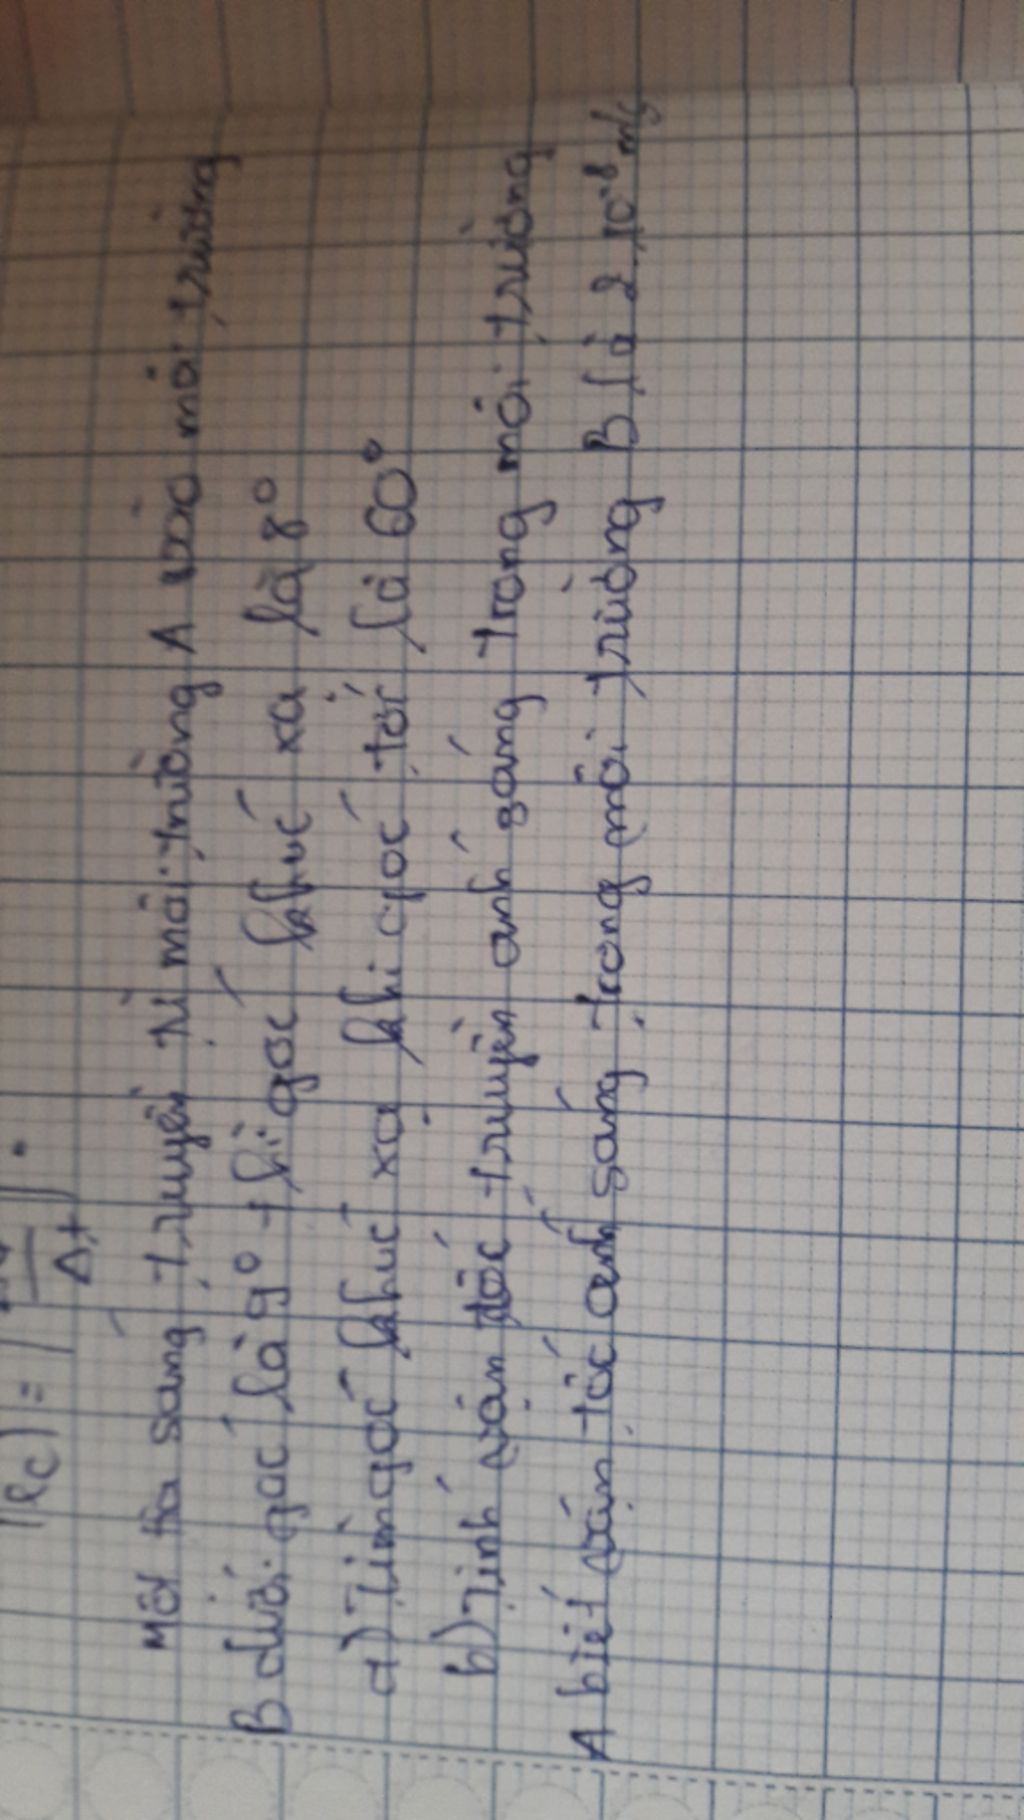 Δt
Một tia sáng truyền từ môi trường A vào môi trường
B dưới góc là 9° thì góc khúc xạ là 8°
a) Tìm góc khúc xạ khi góc tới là 60°
b) Tính vận tốc truyền ánh sáng trong môi trường
A biết vận tốc ánh sáng trong môi trường B là 2.10⁻⁸ m/s